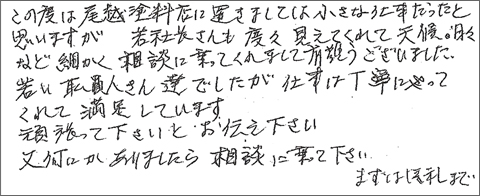 この度は尾越塗料店に置きましては小さな仕事だったと
思いますが 若社長さんも度々見えてくれて天候の日々
など細かく相談に乗ってくれまして有難うございました。
若い職員人さん達でしたが仕事は丁寧にやって
くれて満足しています
頑張って下さいとお伝え下さい
又何にかありましたら相談に乗って下さい
まずは御礼まで